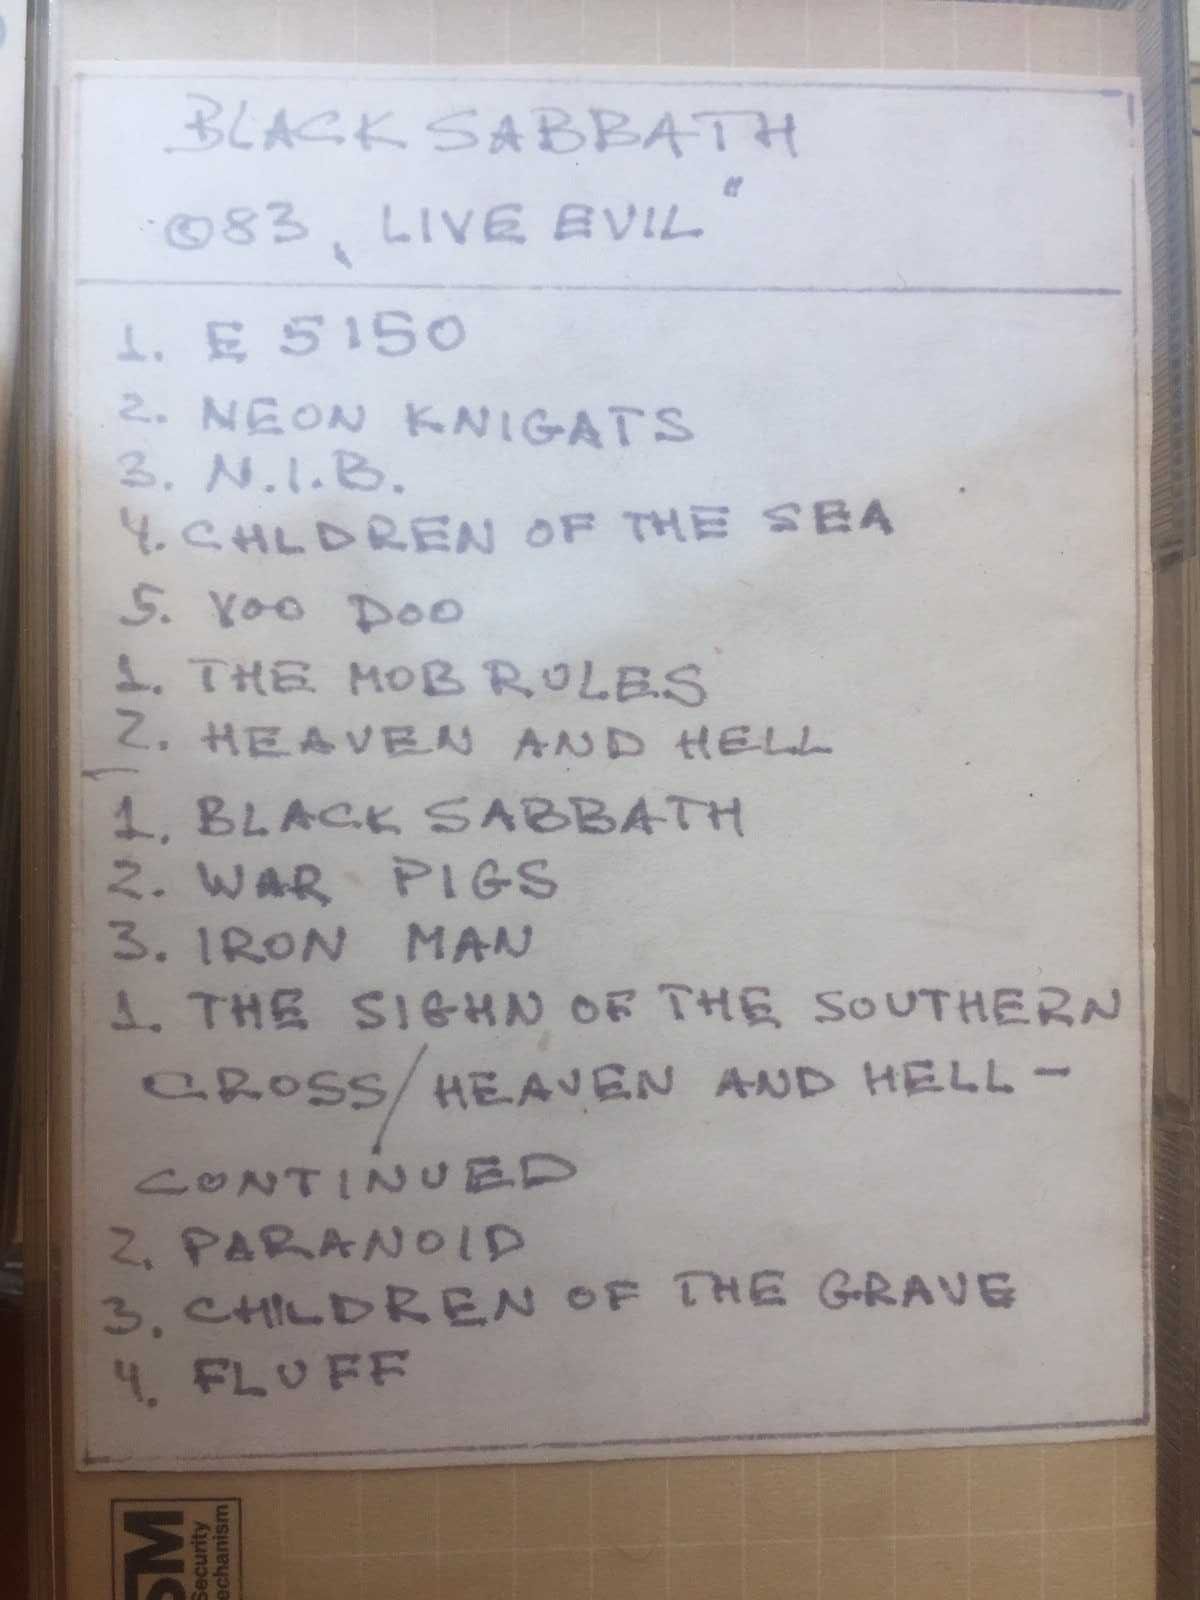 BLACK SABBATH
©83 „LIVE EVIL"
1. E 5150
2. NEON KNIGATS
3. N.I.B.
4. CHLDREN OF THE SEA
5. VOO DOO
1. THE MOB RULES
2. HEAVEN AND HELL
1. BLACK SABBATH
2. WAR PIGS
3. IRON MAN
1. THE SIGHN OF THE SOUTHERN
CROSS/HEAVEN AND HELL-
CONTINUED
2. PARANOID
3. CHILDREN OF THE GRAVE
4. FLUFF
SM
Security
echanism